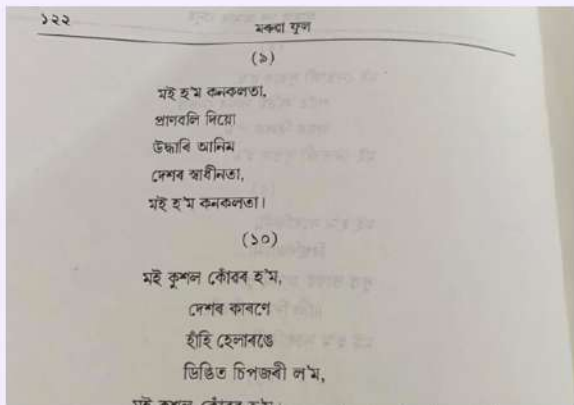 ১২২
মৰুৱা ফুল
(৯)
মই হ'ম কনকলতা,
প্ৰাণবলি দিয়ো
উদ্ধাৰি আনিম
দেশৰ স্বাধীনতা,
মই হ'ম কনকলতা।
(১০)
মই কুশল কোঁৱৰ হ'ম,
দেশৰ কাৰণে
হাঁহি হেলাৰঙে
ডিঙিত চিপজৰী ল'ম,
মই কুশল কোঁৱৰ হ'ম।